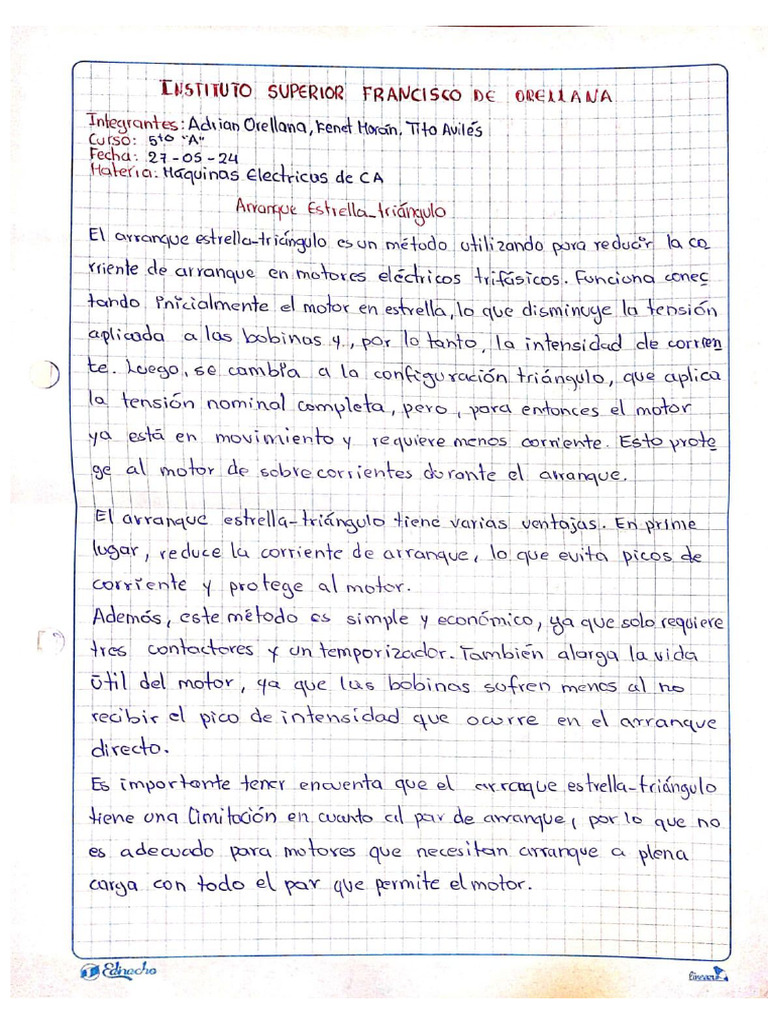 INSTITUTO SUPERIOR FRANCISCO DE ORELLANA
Integrantes: Adrian Orellana, Kenet Morán, Tito Avilés
Curso: 5to "A"
Fecha: 27-05-24
Materia: Máquinas Electricas de CA
Arranque Estrella-triángulo
El arranque estrella-triángulo es un método utilizando para reducir la co
rriente de arranque en motores eléctricos trifásicos. Funciona conec
tando inicialmente el motor en estrella, lo que disminuye la tensión
aplicada a las bobinas y, por lo tanto, la intensidad de corrien
te. Luego, se cambia a la configuración triángulo, que aplica
la tensión nominal completa, pero, para entonces el motor
ya está en movimiento y requiere menos corriente. Esto prote
ge al motor de sobrecorrientes durante el arranque.
El arranque estrella-triángulo tiene varias ventajas. En prime
lugar, reduce la corriente de arranque, lo que evita picos de
corriente y protege al motor.
Además, este método es simple y económico, ya que solo requiere
tres contactores y un temporizador. También alarga la vida
útil del motor, ya que las bobinas sufren menos al no
recibir el pico de intensidad que ocurre en el arranque
directo.
Es importante tener encuenta que el arranque estrella-triángulo
tiene una limitación en cuanto al par de arranque, por lo que no
es adecuado para motores que necesitan arranque a plena
carga con todo el par que permite el motor.